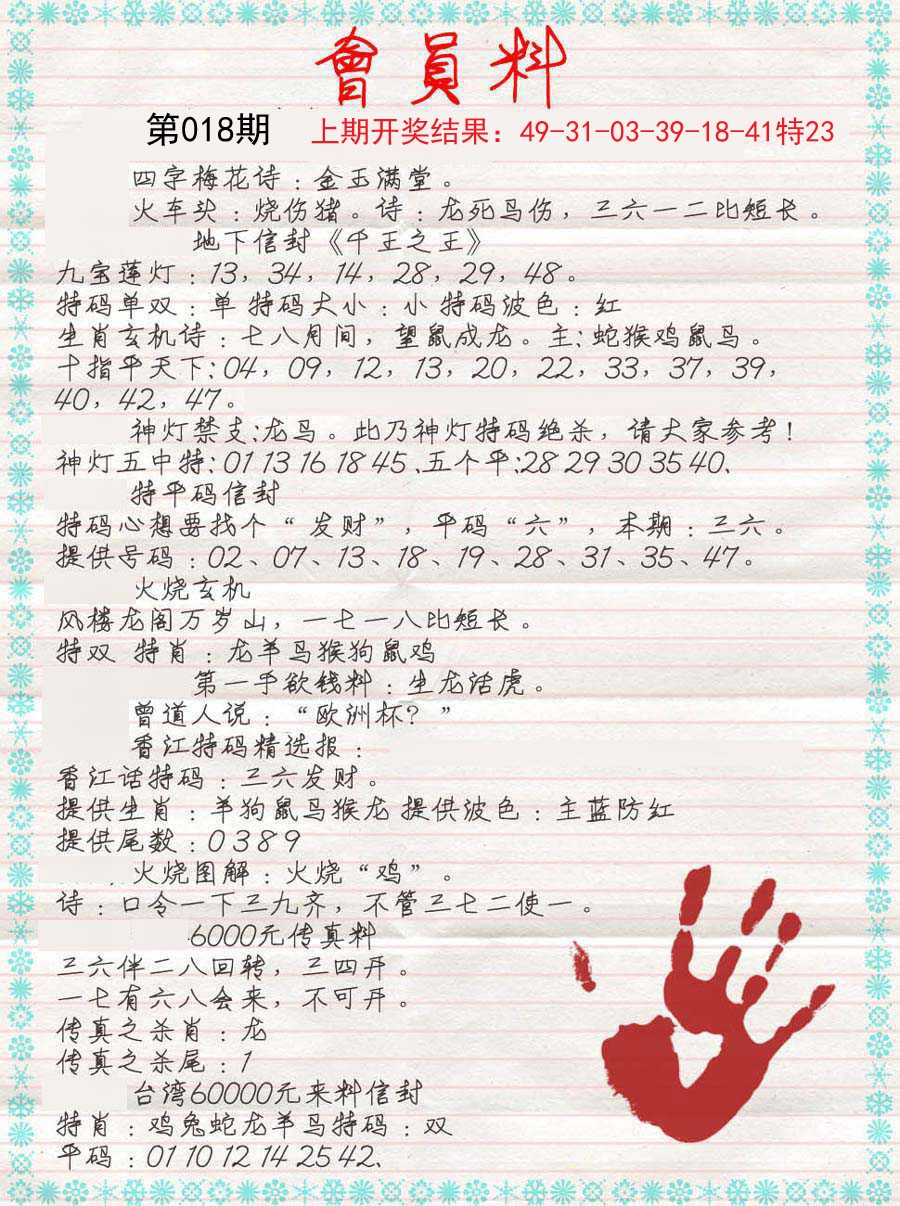 會員料
第018期 上期开奖结果：49-31-03-39-18-41特23
四字梅花诗：金玉满堂。
火车头：烧伤猪。诗：龙死鸟伤，三六一二比短长。
地下信封《千王之王》
九宝莲灯：13，34，14，28，29，48。
特码单双：单 特码大小：小 特码波色：红
生肖玄机诗：七八月间，望鼠成龙。主:蛇猴鸡鼠鸟。
十指平天下:04，09，12，13，20，22，33，37，39，
40，42，47。
神灯禁支:龙鸟。此乃神灯特码绝杀，请大家参考！
神灯五中特:01 13 16 18 45、五个平:28 29 30 35 40、
特平码信封
特码心想要找个“发财”，平码“六”，本期：三六。
提供号码：02、07、13、18、19、28、31、35、47。
火烧玄机
风楼龙阁万岁山，一七一八比短长。
特双 特肖：龙羊鸟猴狗鼠鸡
第一手欲钱料：生龙活虎。
曾道人说：“欧洲杯？”
香江特码精选报：
香江话特码：三六发财。
提供生肖：羊狗鼠鸟猴龙 提供波色：主蓝防红
提供尾数：0 3 8 9
火烧图解：火烧“鸡”。
诗：口令一下三九齐，不管三七二使一。
6000元传真料
三六伴二八回转，三四开。
一七有六八会来，不可开。
传真之杀肖：龙
传真之杀尾：1
台湾60000元来料信封
特肖：鸡兔蛇龙羊鸟特码：双
平码：01 10 12 14 25 42、